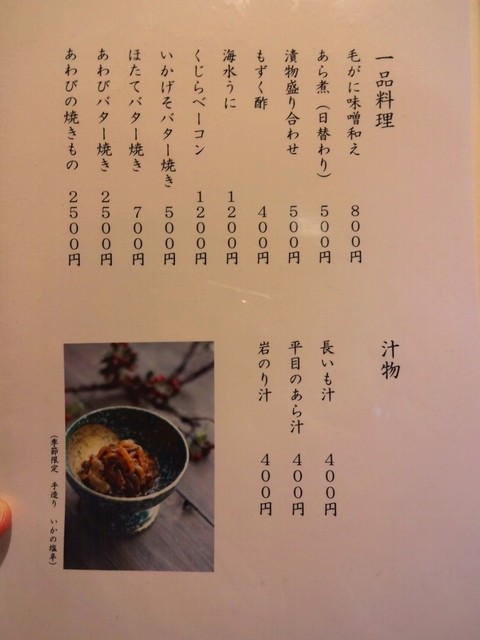 一品料理
毛がに味噌和え 800円
あら煮(日替わり) 500円
漬物盛り合わせ 500円
もずく酢 400円
海水うに 1200円
くじらベーコン 1200円
いかげそバター焼き 500円
ほたてバター焼き 700円
あわびバター焼き 2500円
あわびの焼きもの 2500円
汁物
長いも汁 400円
平目のあら汁 400円
岩のり汁 400円
(季節限定 手造り いかの塩辛)